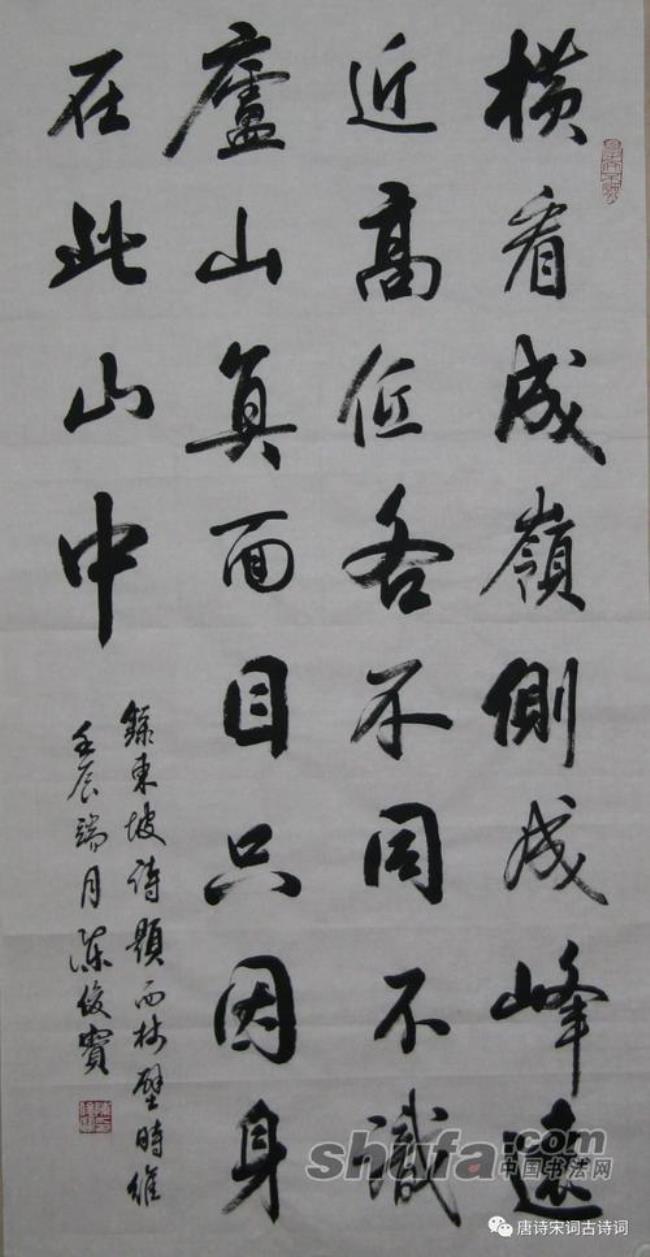 横看成嶺側成峰遠
近高低各不同不識
廬山真面目只因身
在此山中
錄東坡诗題西林壁時維
壬辰端月陳俊
shufa.com
中国书法网
唐诗宋词古诗词